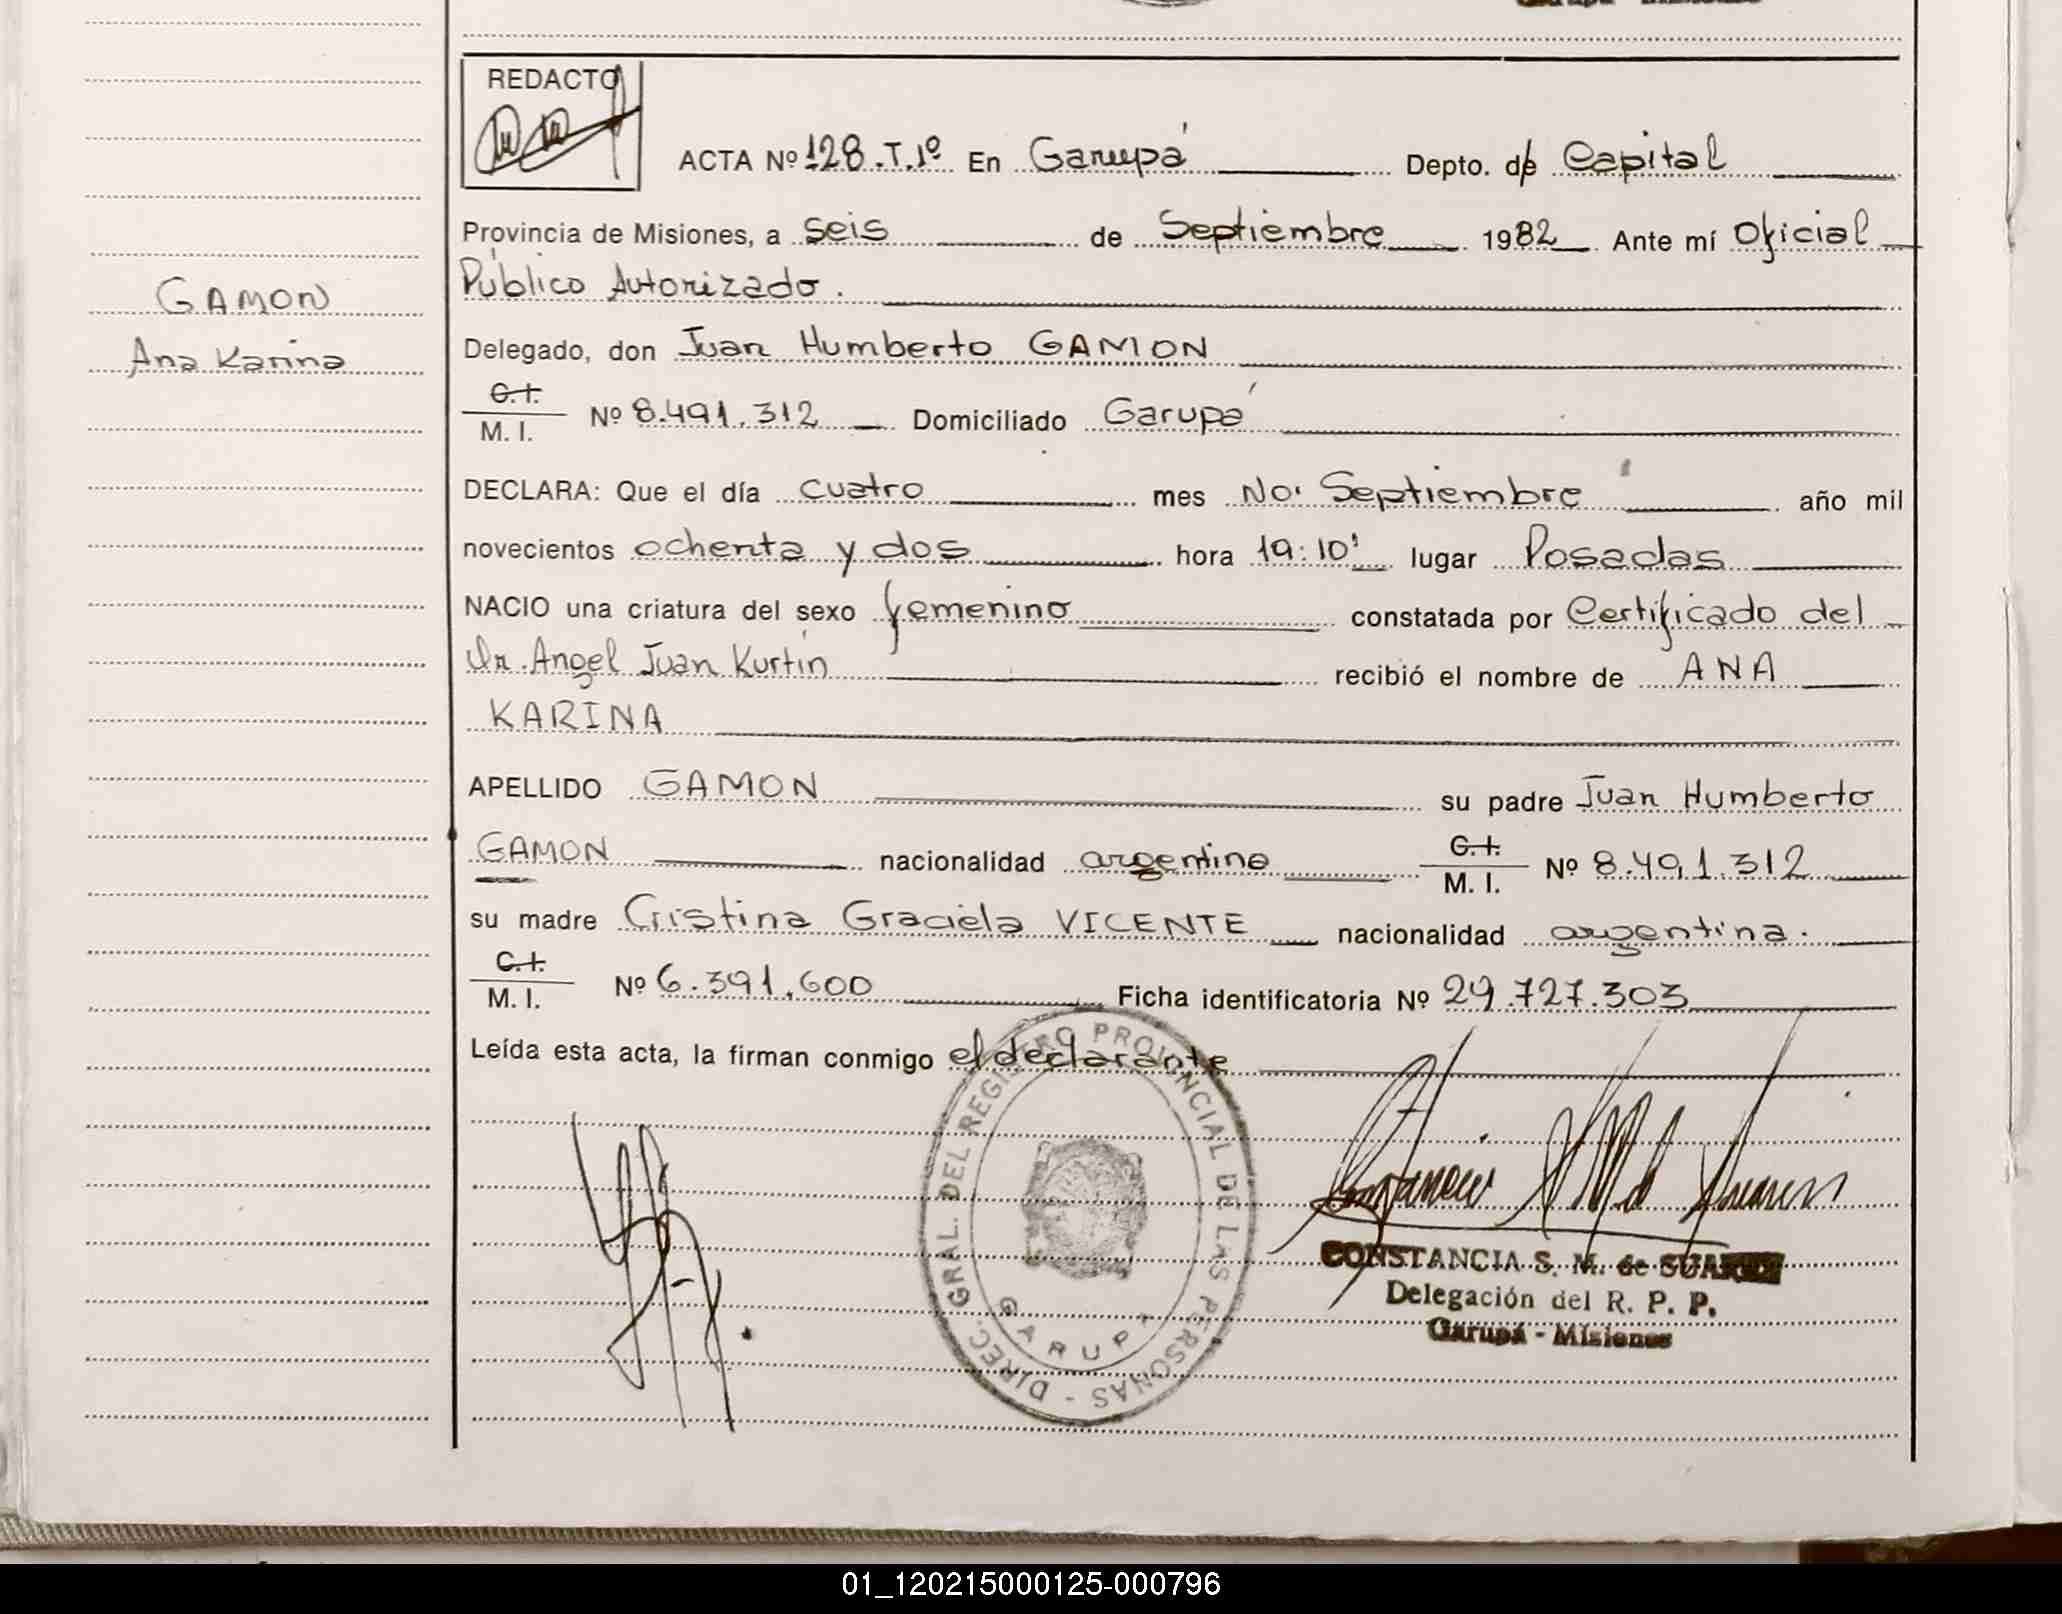 REDACTO
ACTA Nº 128.T.1º En Garupá Depto. de Capital
Provincia de Misiones, a seis de Septiembre 1982 Ante mí Oficial
Público Autorizado.
GAMON
Ana Karina
Delegado, don Juan Humberto GAMON
C.I.
M. I. Nº 8.491.312 Domiciliado Garupá
DECLARA: Que el día cuatro mes No. Septiembre año mil
novecientos ochenta y dos hora 19:10' lugar Posadas
NACIO una criatura del sexo femenino constatada por Certificado del
Dr. Angel Juan Kurtin recibió el nombre de ANA
KARINA
APELLIDO GAMON su padre Juan Humberto
GAMON nacionalidad argentina C.I. M. I. Nº 8.491.312
su madre Cristina Graciela VICENTE nacionalidad argentina.
C.I.
M. I. Nº 6.391.600 Ficha identificatoria Nº 29.727.303
Leída esta acta, la firman conmigo el declarante
DIREC. GRAL. DEL REGISTRO PROVINCIAL DE LAS PERSONAS -
GARUPA
CONSTANCIA S. M. de SUAREZ
Delegación del R. P. P.
Garupá - Misiones
01_120215000125-000796